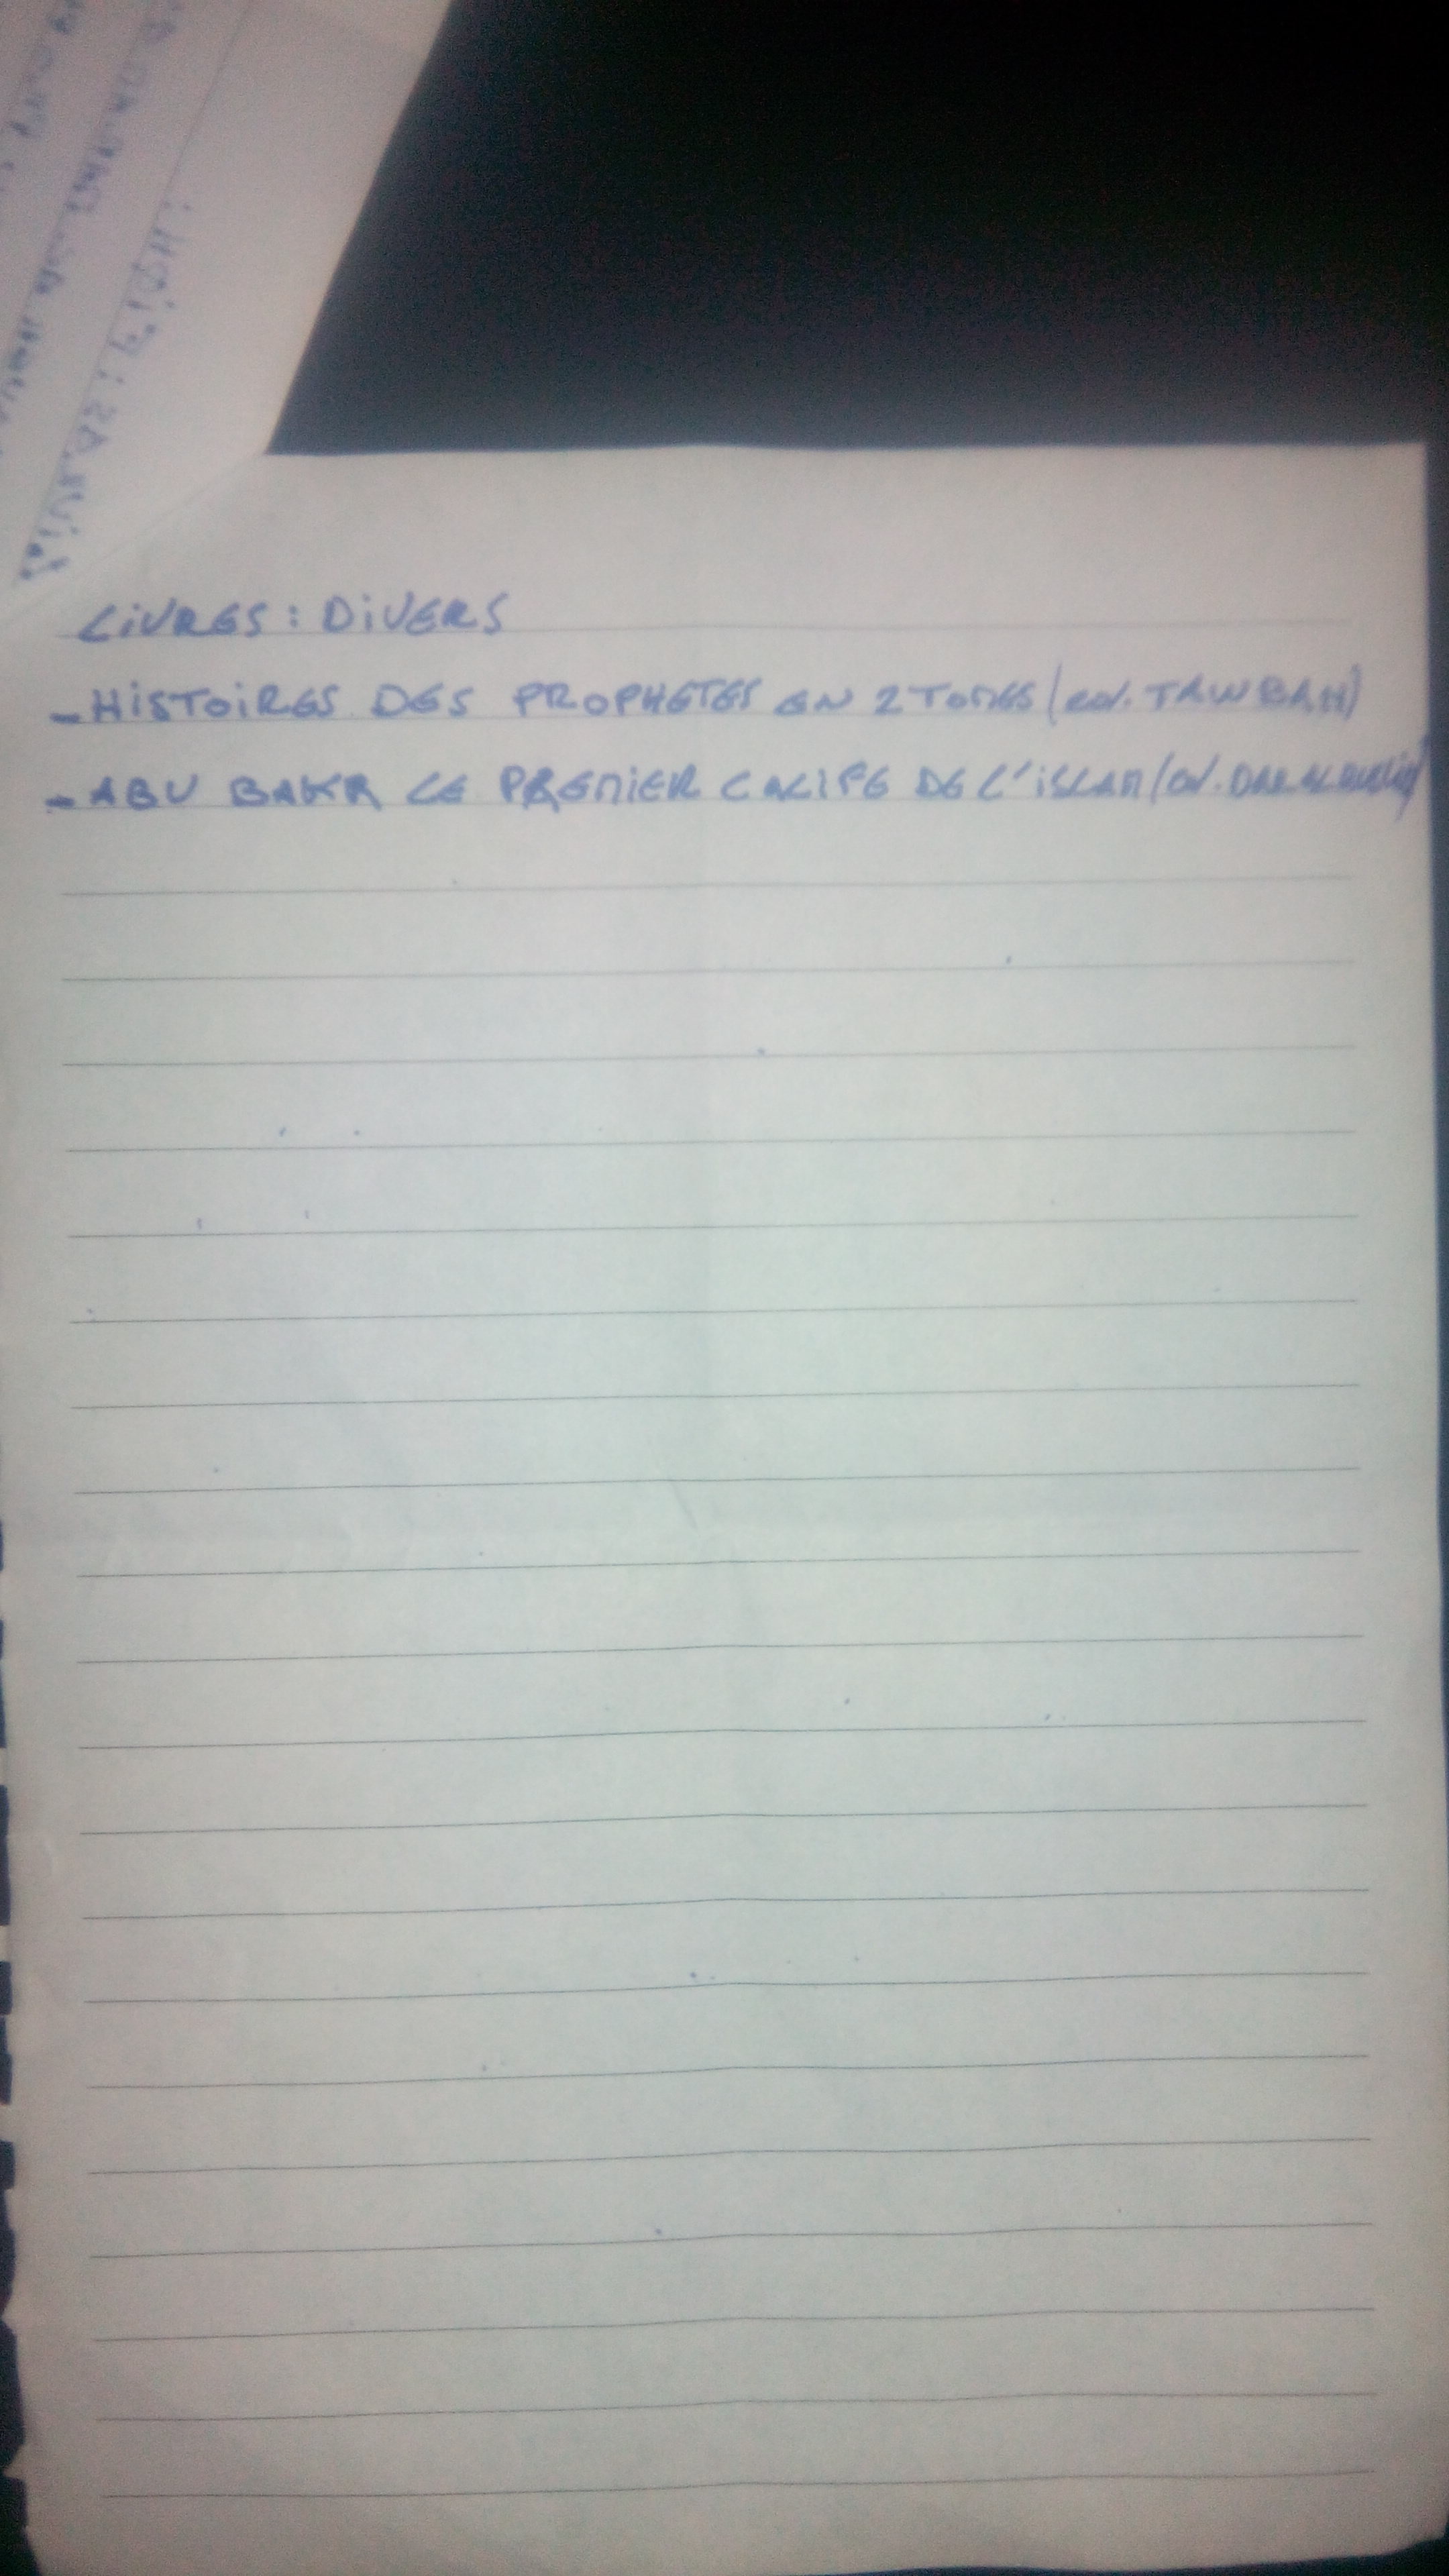 LIVRES : DIVERS
- HISTOIRES DES PROPHETES EN 2 TOMES (ed. TAWBAH)
- ABU BAKR LE PREMIER CALIFE DE L'ISLAM (ed. DAR AL